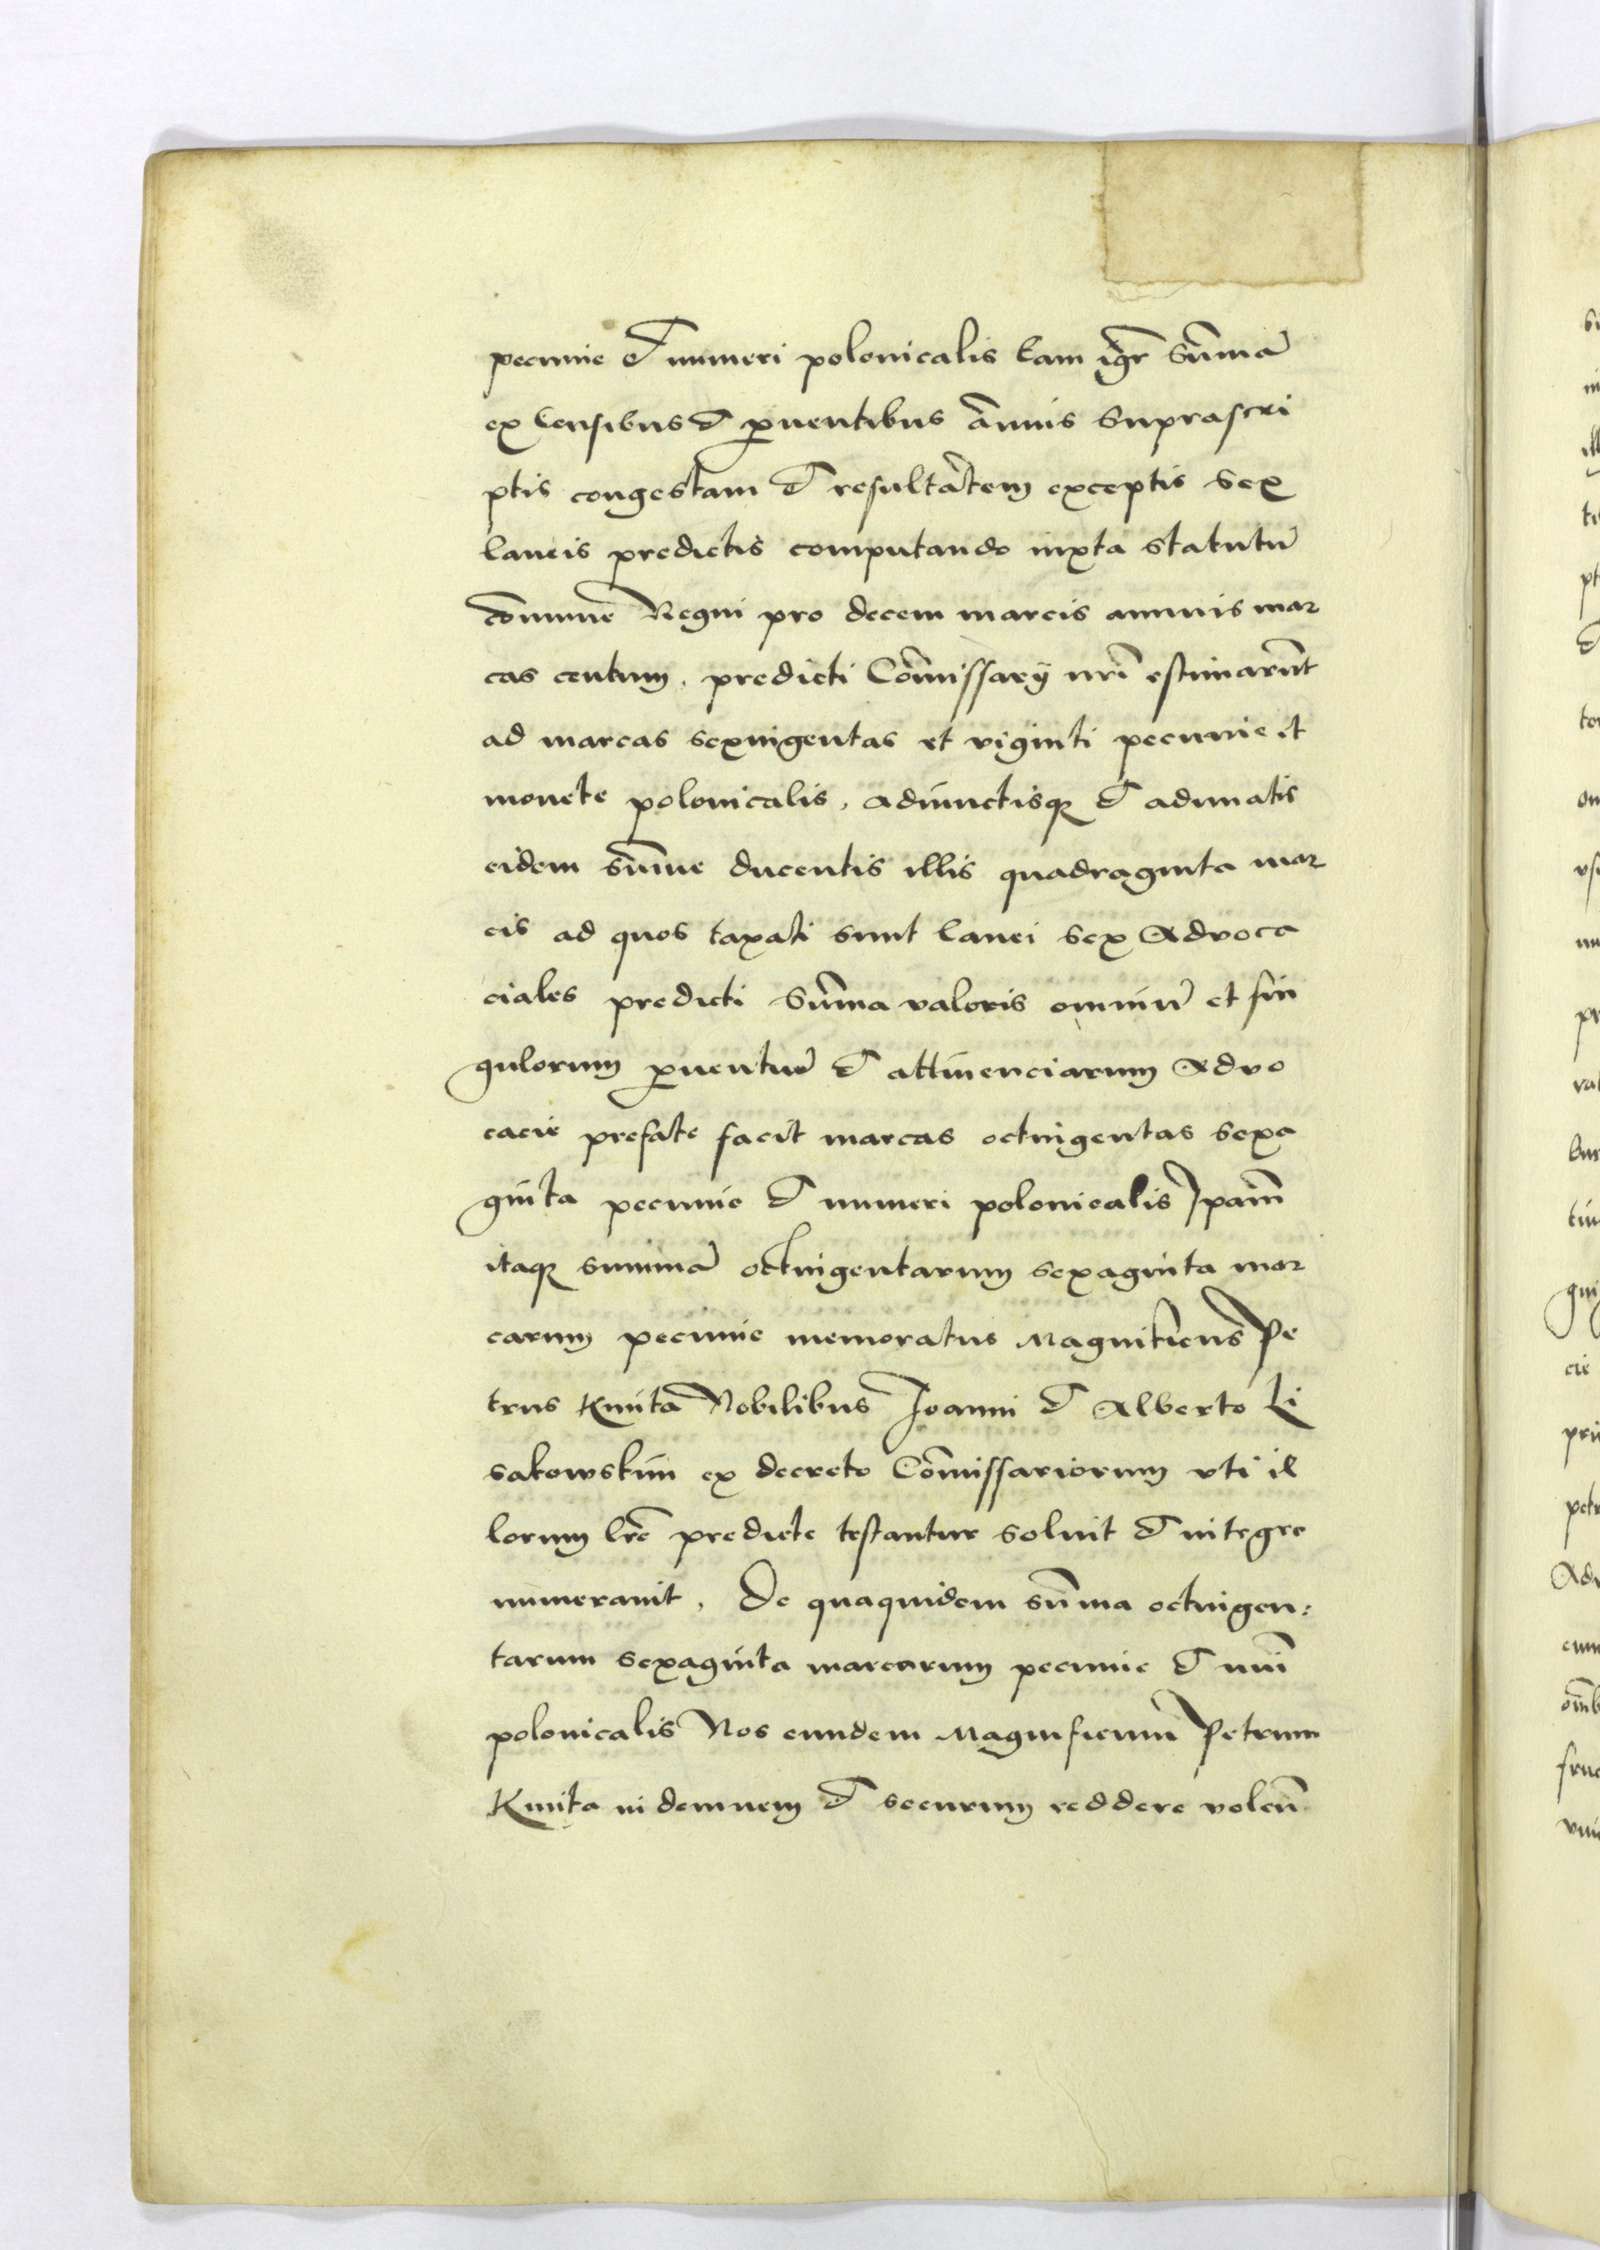 pecunie et numeri polonicalis Eam igr̄ Sum̄ā
ex Censibus et ꝓuentibus ān̄uis Suprascri
ptis congestam et resultātem exceptis sex
laneis predictis computando iuxta statutū
cōmune Regni pro decem marcis annuis mar
cas centum, predicti Com̄issarij nr̄i estimarūt
ad marcas sexingentas et viginti pecunie et
monete polonicalis, adiunctisqꝫ et adunatis
eidem sum̄e ducentis illis quadraginta mar
cis ad quos taxati sunt lanei sex Advoca
ciales predicti Sum̄a valoris omniū et sin
gulorum ꝓuentuū et attinenciarum Advo
cacie prefate facit marcas octingentas sexa
ginta pecunie et numeri polonicalis Ip̄am
itaqꝫ summā octingentarum sexaginta mar
carum pecunie memoratus Magnificus Pe
trus Kmita Nobilibus Joanni et Alberto Li
sakowskim ex decreto Com̄issariorum vti il
lorum lr̄e predicte testantur soluit et integre
numerauit, De quaquidem sum̄a octingen:
tarum sexaginta marcarum pecunie et nūi
polonicalis Nos eundem Magnificum Petrum
Kmita indemnem et securum reddere volen̄